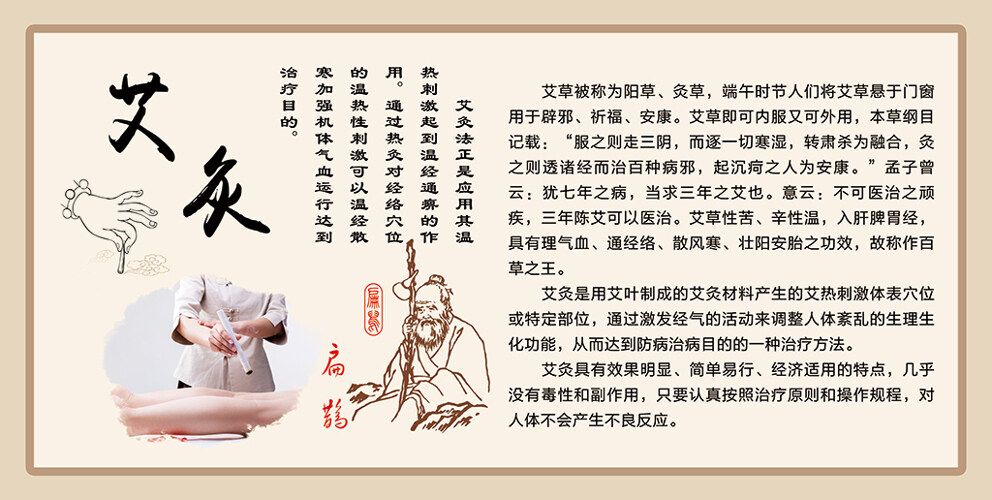 艾灸
艾灸法正是应用其温
热刺激起到温经通痹的作
用。通过热灸对经络穴位
的温热性刺激可以温经散
寒加强机体气血运行达到
治疗目的。
扁鹊
扁鹊
艾草被称为阳草、灸草，端午时节人们将艾草悬于门窗
用于辟邪、祈福、安康。艾草即可内服又可外用，本草纲目
记载：“服之则走三阴，而逐一切寒湿，转肃杀为融合，灸
之则透诸经而治百种病邪，起沉疴之人为安康。”孟子曾
云：犹七年之病，当求三年之艾也。意云：不可医治之顽
疾，三年陈艾可以医治。艾草性苦、辛性温，入肝脾胃经，
具有理气血、通经络、散风寒、壮阳安胎之功效，故称作百
草之王。
艾灸是用艾叶制成的艾灸材料产生的艾热刺激体表穴位
或特定部位，通过激发经气的活动来调整人体紊乱的生理生
化功能，从而达到防病治病目的的一种治疗方法。
艾灸具有效果明显、简单易行、经济适用的特点，几乎
没有毒性和副作用，只要认真按照治疗原则和操作规程，对
人体不会产生不良反应。